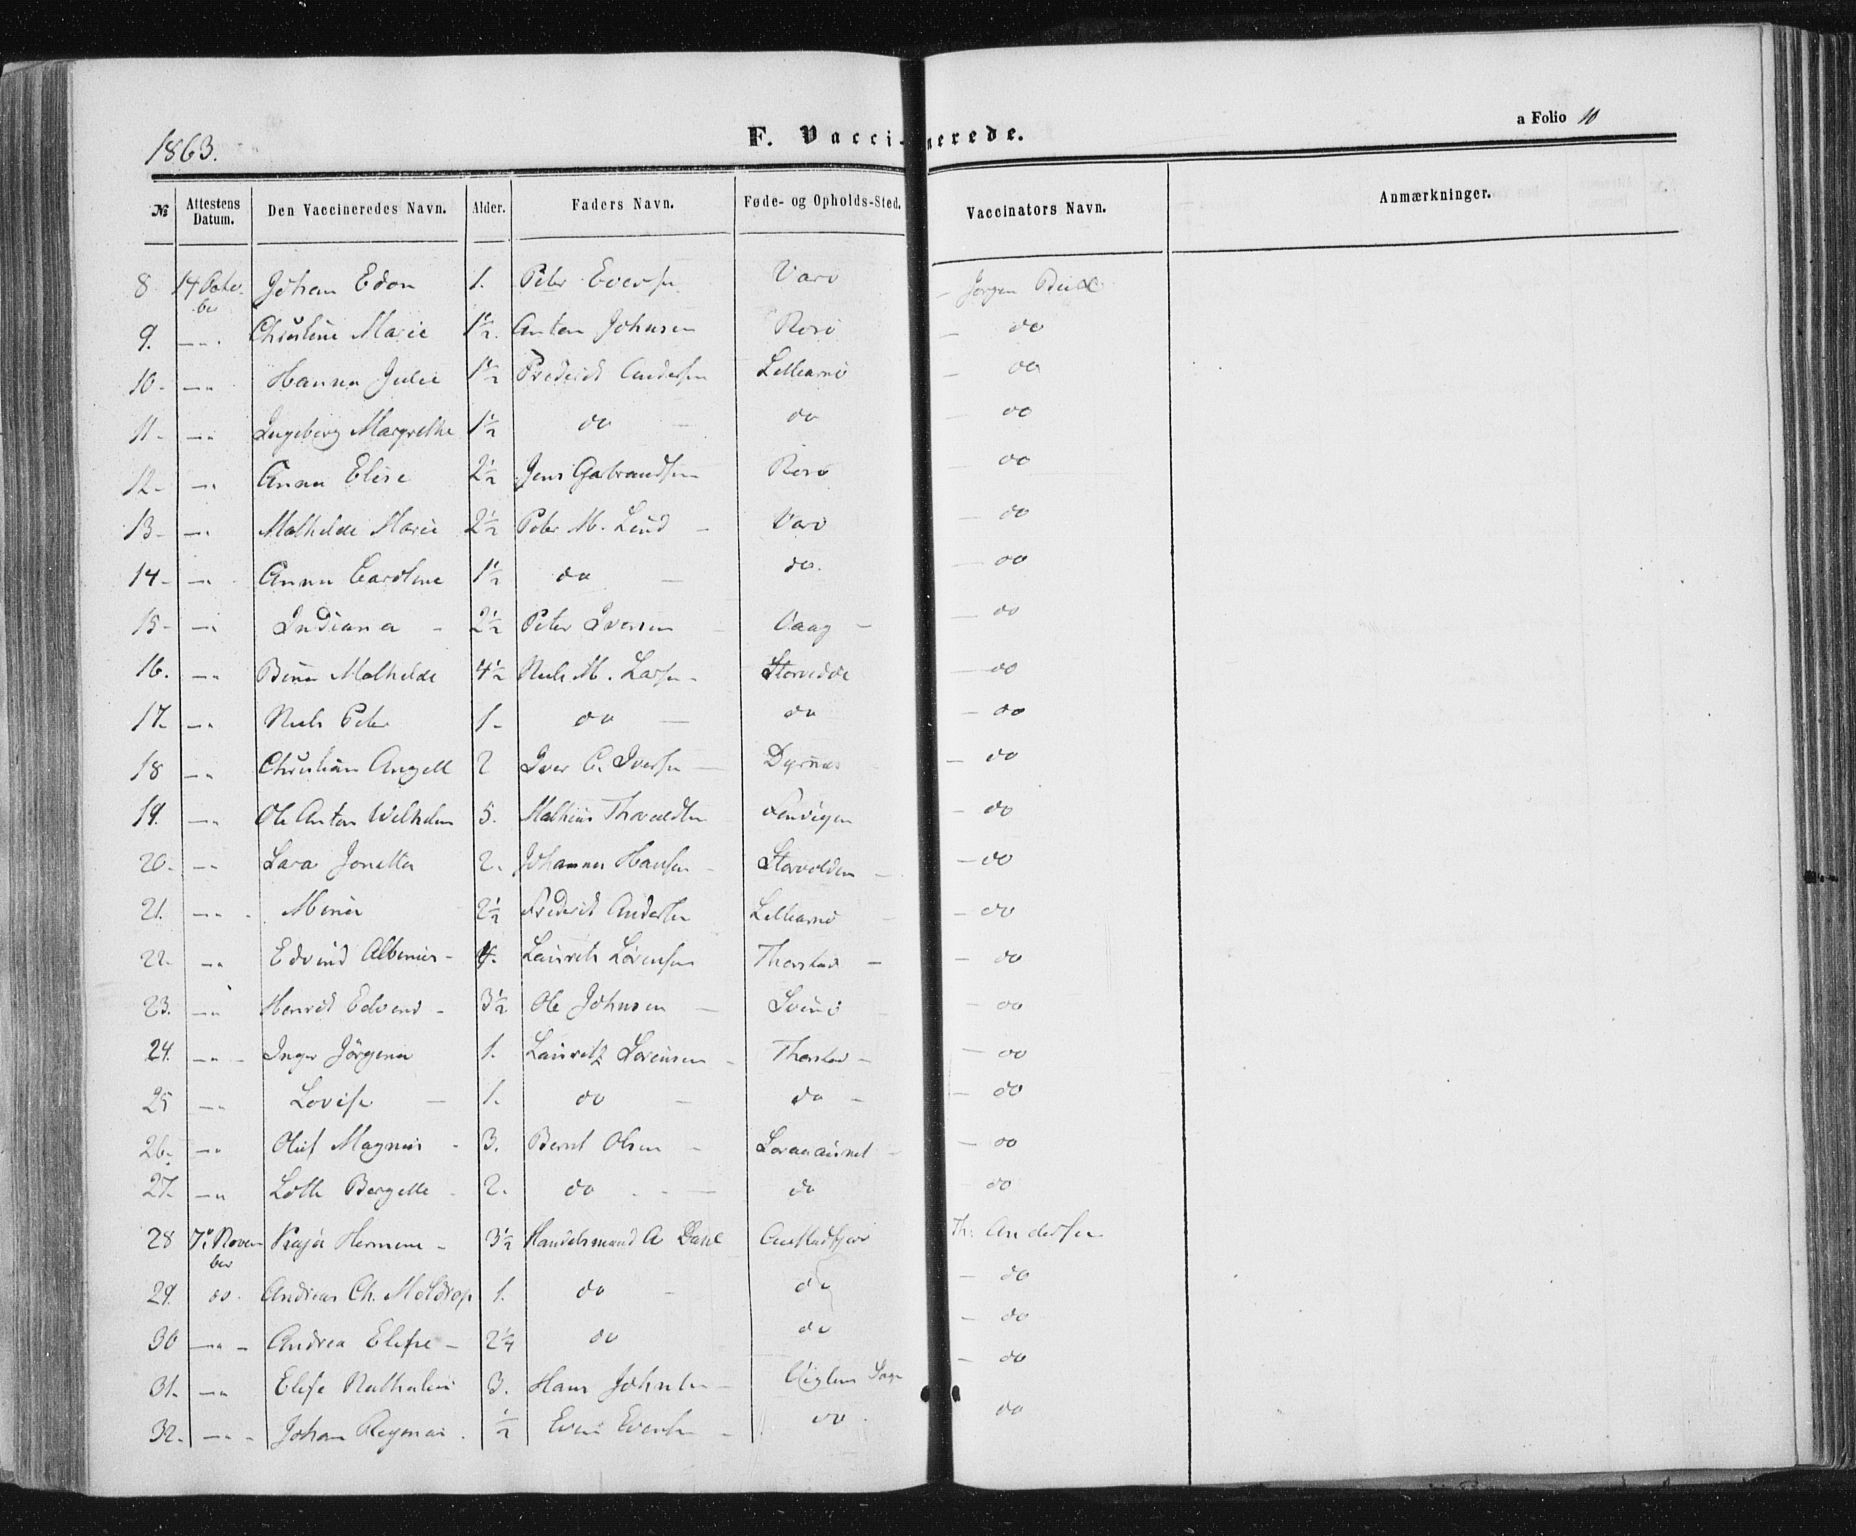 1863.
F. Vaccinerede.
a Folio 10
№ Attestens Datum. Den Vaccineredes Navn. Alder. Faders Navn. Føde- og Opholds-Sted. Vaccinators Navn. Anmærkninger.
8. 14 October Johan Edon 1. Peter Eversen Varø Jørgen
9. — Christine Marie 1½. Anton Johnsen Rosø — do
10- — Hanna Julie 1½ Frederik Andersen Lillearnø — do
11- — Ingeborg Margrethe 1½ do — do — do
12- — Anna Elise 2½ Jens Gabrandsen Rosø — do
13- — Mathilde Marie 2½ Peter M. Lund — Varø — do
14- — Anna Caroline 1½ do — do. — do
15- — Indiana - 2½ Peter Iversen — Vaag — — do
16. — Bina Mathilde 4½ Niels M. Larsen - — do
17- — Niels Peter 1- do — do — do
18 — Christian Angell 2 Iver C. Iversen — Dyrnæs — do
19. — Ole Anton Wilhelm 5. Mathias Thorvaldsen — do
20- — Lara Jonetta 2. Johannes Hansen - Storvolden — — do
21. — Mina 2½ Frederik Andersen Lillearnø — do
22- — Edvind Albinius - 4. Lauritz Lorensen Thorstad — — do
23. — Henrik Edvend - 3½ Ole Johnsen — Svinø — do
24. — Inger Jörgina 1. Lauritz Lorensen - Thorstad - — do
25 — Lovise — 1. do — do - — do
26- — Oluf Magnus - 3. Bernt Olsen - — do
27. — Lotte Bergitte - 2. do — do — do
28 7de November Kaja Hermine - 3½ Handelsmand A Dahl Aukladfjord Th: Andersen
29. do. Andreas Ch. Moldrop 1. do - do — do
30 — Andrea Elise - 2¼ do do — do
31. — Elise Nathalia 3. Hans Johnsen — — do
32. — Johan Regnar . ½ Even Evensen - do. do